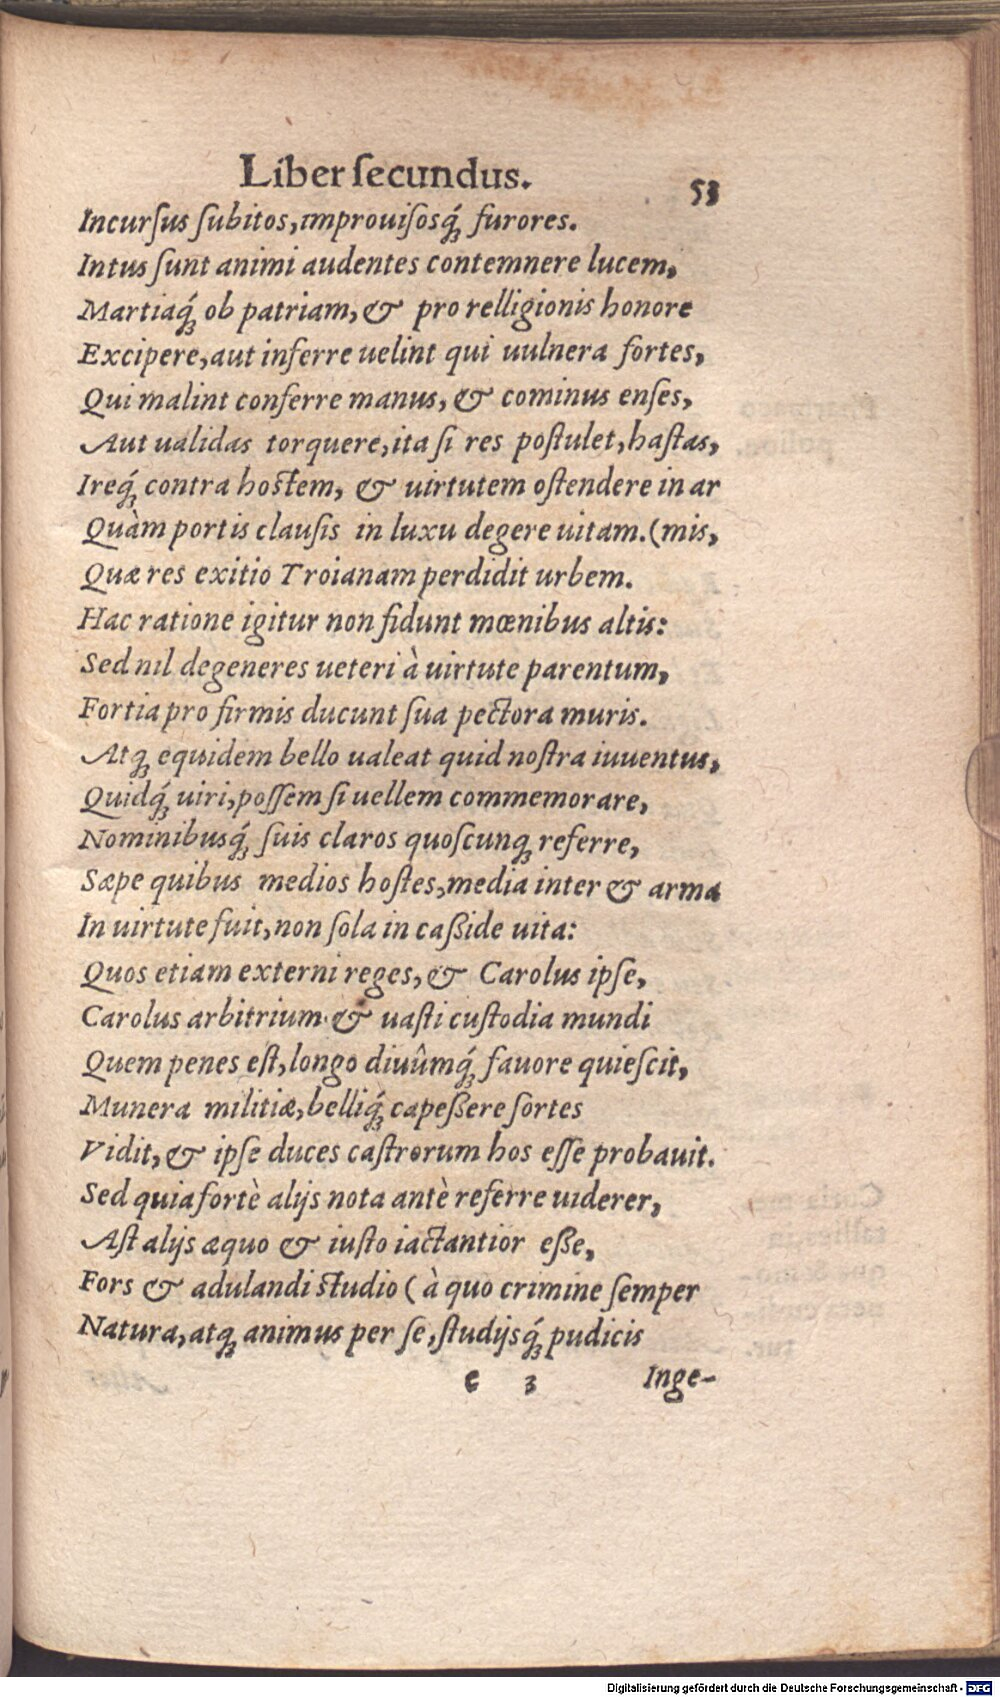 Liber ſecundus.
53
Incurſus ſubitos, improuiſosq́; furores.
Intus ſunt animi audentes contemnere lucem,
Martiaq́; ob patriam, & pro relligionis honore
Excipere, aut inferre uelint qui uulnera fortes,
Qui malint conferre manus, & cominus enſes,
Aut ualidas torquere, ita ſi res poſtulet, haſtas,
Ireq́; contra hoſtem, & uirtutem oſtendere in ar
Quàm portis clauſis in luxu degere uitam. (mis,
Quæ res exitio Troianam perdidit urbem.
Hac ratione igitur non fidunt mœnibus altis:
Sed nil degeneres ueteri à uirtute parentum,
Fortia pro firmis ducunt ſua pectora muris.
Atq; equidem bello ualeat quid noſtra iuuentus,
Quidq́; uiri, poſſem ſi uellem commemorare,
Nominibusq́; ſuis claros quoſcunq; referre,
Sæpe quibus medios hoſtes, media inter & arma
In uirtute fuit, non ſola in caßide uita:
Quos etiam externi reges, & Carolus ipſe,
Carolus arbitrium & uaſti cuſtodia mundi
Quem penes eſt, longo diuûmq́; fauore quieſcit,
Munera militiæ, belliq́; capeßere ſortes
Vidit, & ipſe duces caſtrorum hos eſſe probauit.
Sed quia fortè alijs nota antè referre uiderer,
Aſt alijs æquo & iuſto iactantior eße,
Fors & adulandi ſtudio ( à quo crimine ſemper
Natura, atq; animus per ſe, ſtudijsq́; pudicis
e 3
Inge-
Digitalisierung gefördert durch die Deutsche Forschungsgemeinschaft - DFG